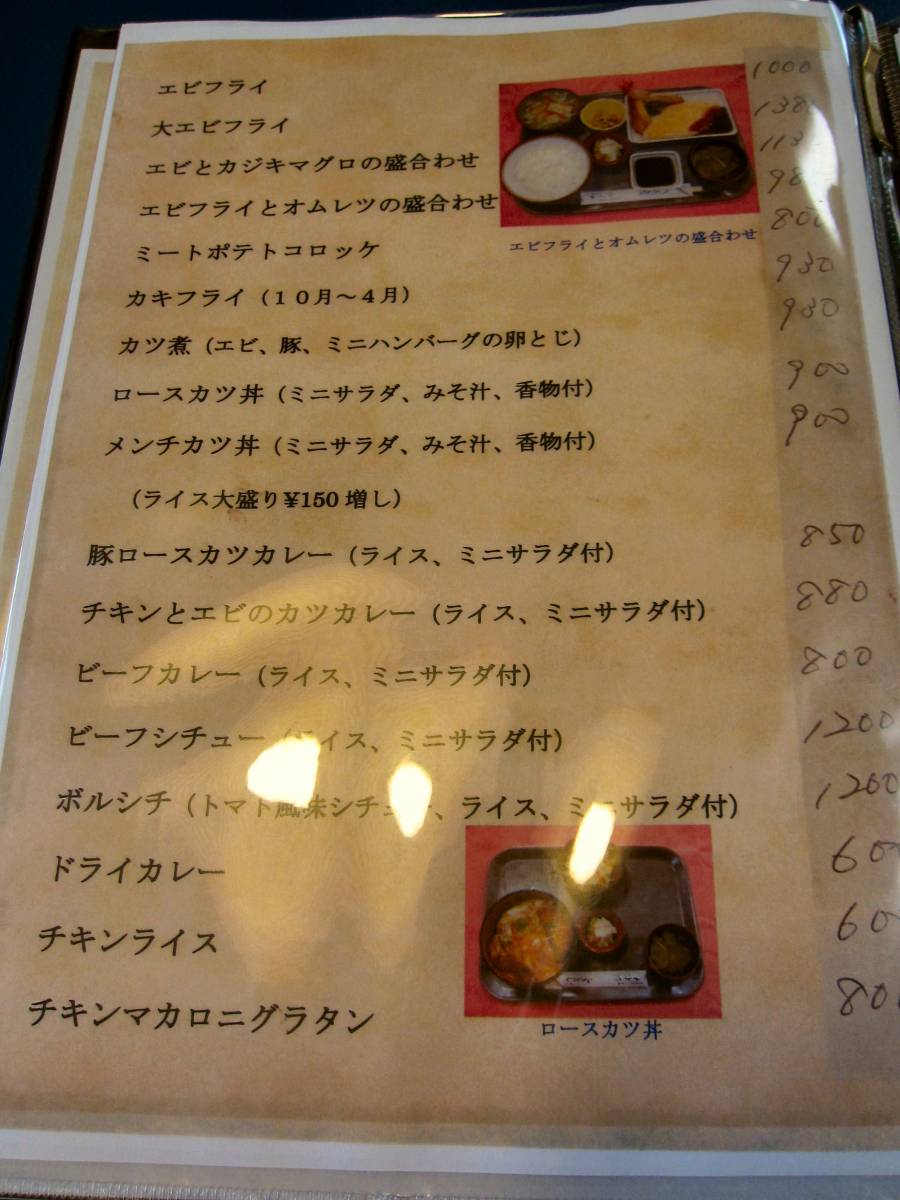 エビフライ 1000
大エビフライ 138
エビとカジキマグロの盛合わせ 113
エビフライとオムレツの盛合わせ 98
エビフライとオムレツの盛合わせ
ミートポテトコロッケ 800
カキフライ（１０月〜４月） 930
カツ煮（エビ、豚、ミニハンバーグの卵とじ） 930
ロースカツ丼（ミニサラダ、みそ汁、香物付） 900
メンチカツ丼（ミニサラダ、みそ汁、香物付） 900
（ライス大盛り¥150増し）
豚ロースカツカレー（ライス、ミニサラダ付） 850
チキンとエビのカツカレー（ライス、ミニサラダ付） 880
ビーフカレー（ライス、ミニサラダ付） 800
ビーフシチュー（ライス、ミニサラダ付） 1200
ボルシチ（トマト風味シチュー、ライス、ミニサラダ付） 1200
ドライカレー 600
チキンライス 600
チキンマカロニグラタン 800
ロースカツ丼